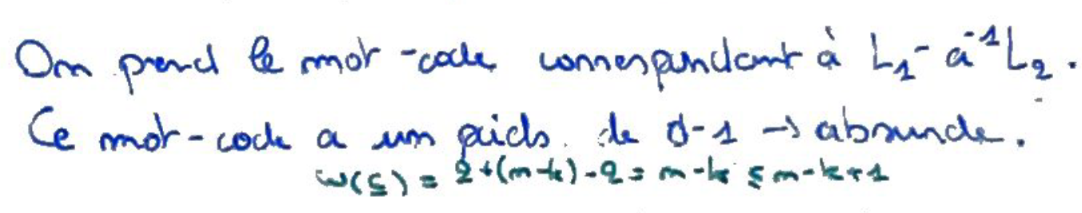 On prend le mot-code correspondant à L₁ - a⁻¹L₂.
Ce mot-code a un poids de d-1 → absurde.
w(c) = 2+(m-k)-2 = m-k ≤ m-k+1